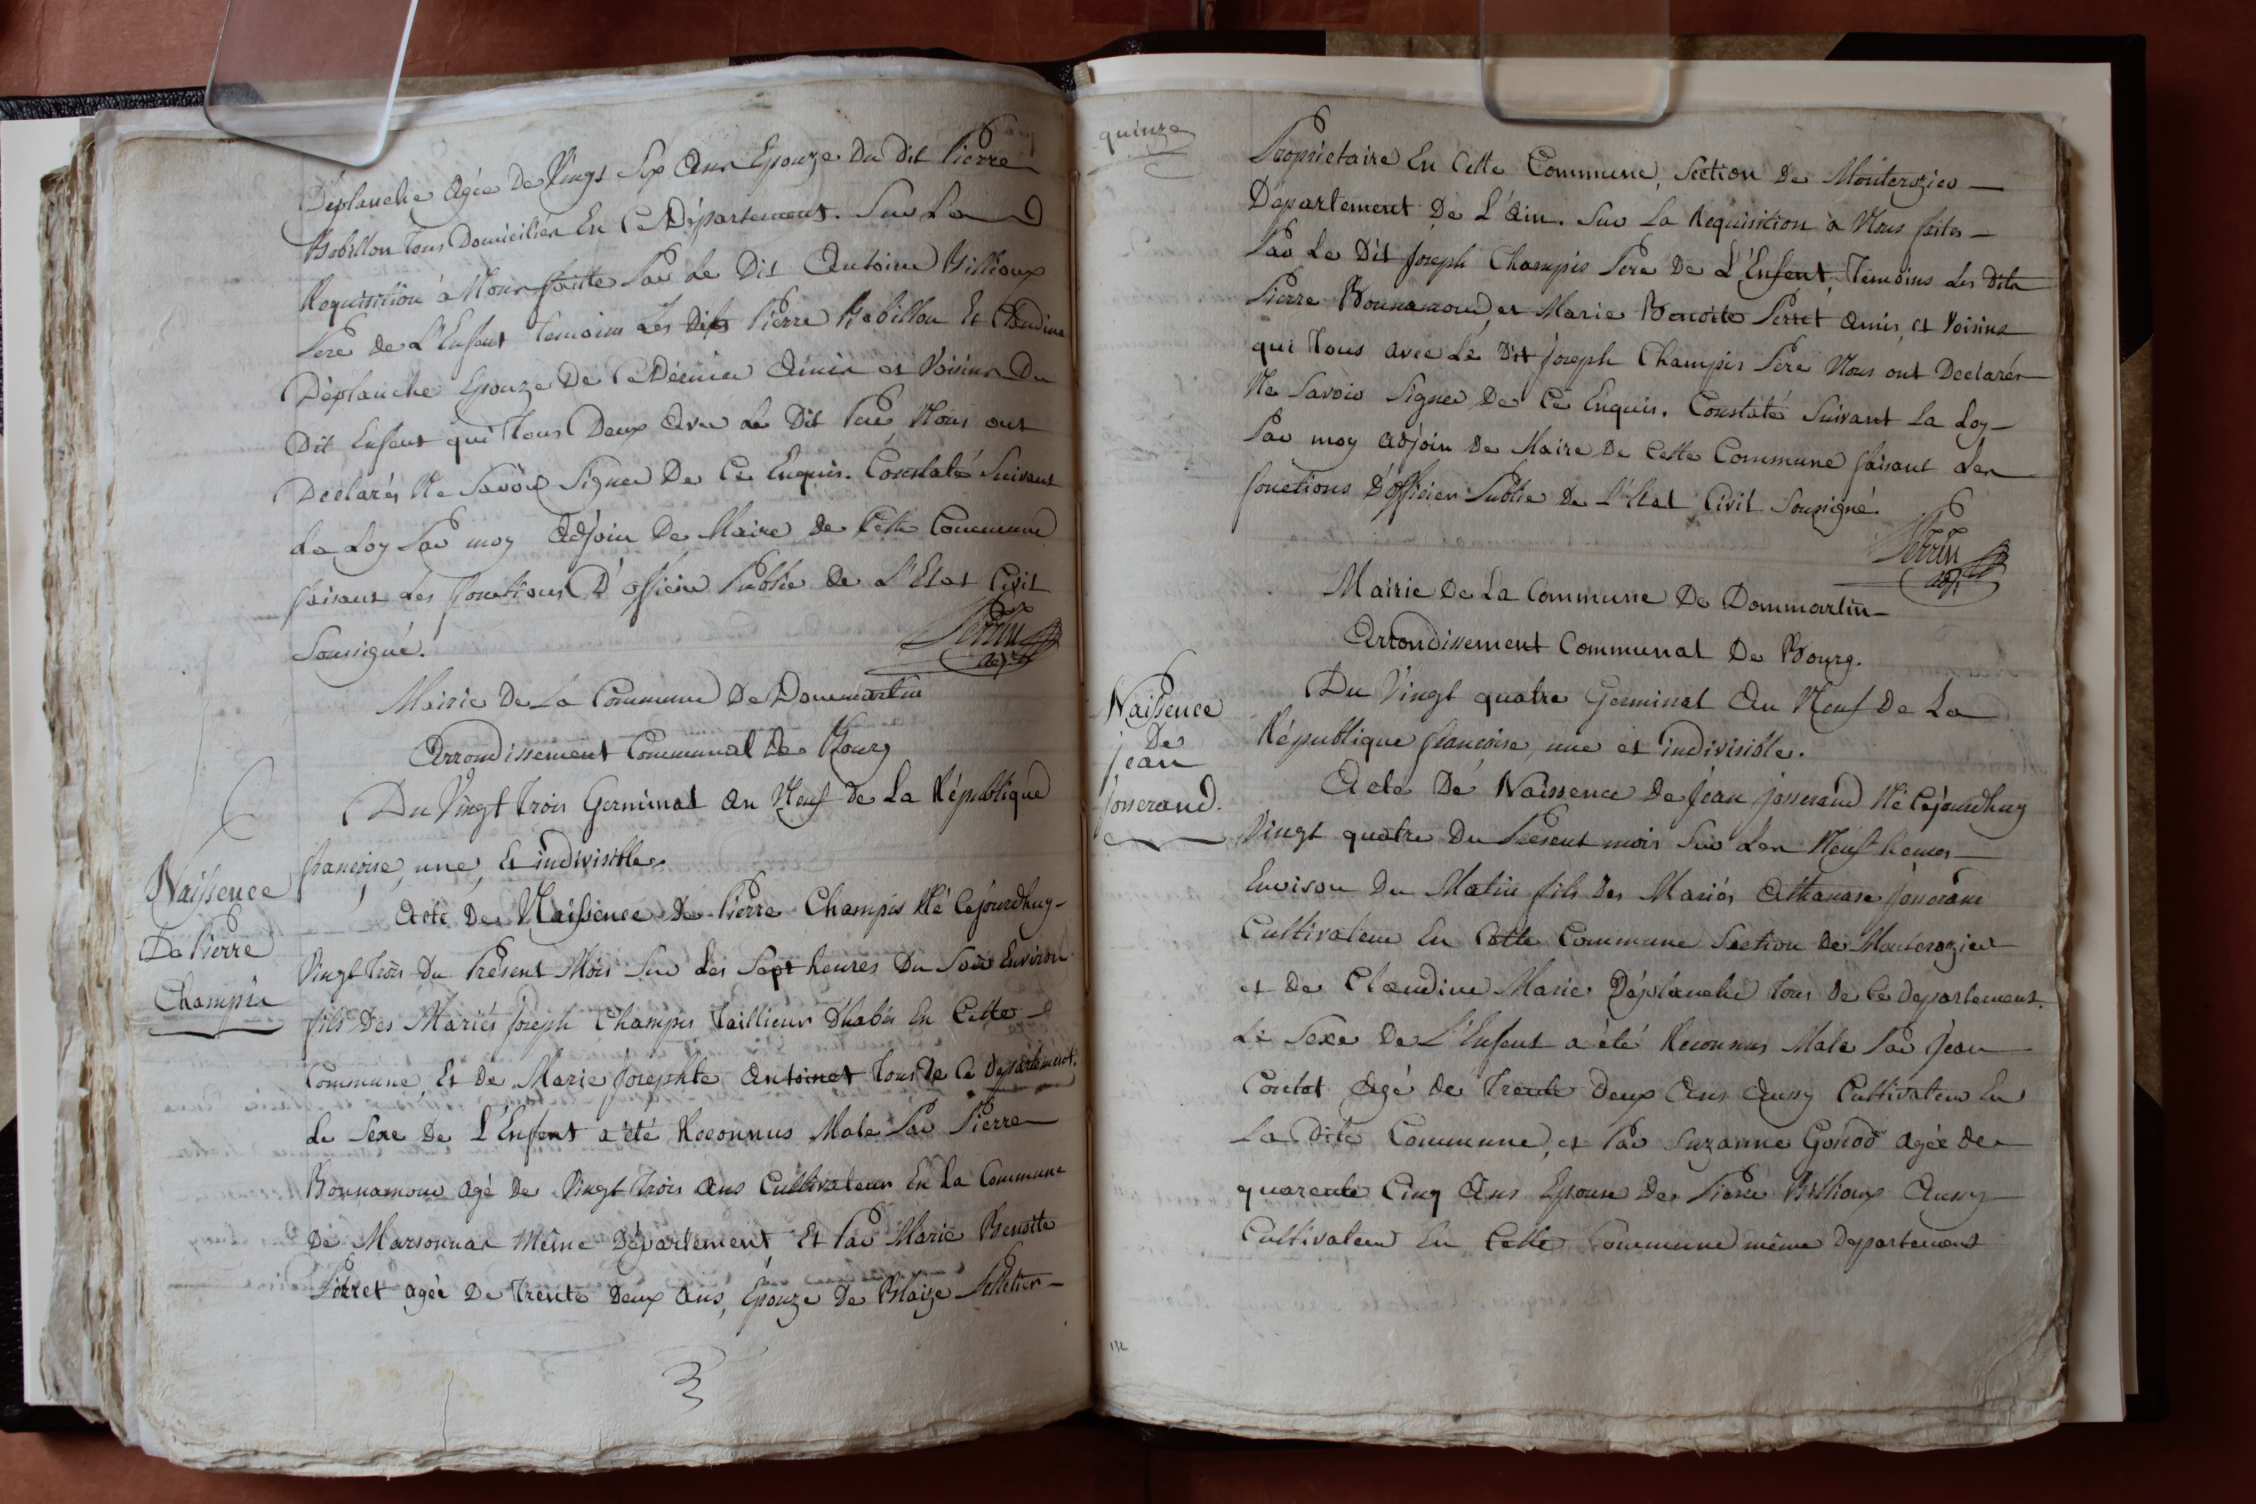 Déplanche Agée De Vingt Six Ans Epouze Du Dit Pierre
Robillon Tous Domiciliés En Ce Département. Sur La
Requisition à Nous faitte Par Le Dit Antoine Billioux
Pere De L'Enfent Temoins Les Dits Pierre Robillon Et Claudine
Déplanche Epouze De Ce Dérnier Amis et Voisins Du
Dit Enfent qui Tous Deux Avec Le Dit Pere Nous ont
Declarés Ne Savoir Signer De Ce Enquis. Constaté Suivant
La Loy Par moy Adjoin De Maire De Cette Commune
faisant Les fonctions D'officier Public De L'Etat Civil
Soussigné.
Perrin
adjt
Mairie De La Commune De Dommartin
Arrondissement Communal De Bourg
Du Vingt Trois Germinal An Neuf De La République
françoise, une, Et indivisible.
Naissence
De Pierre
Champis
Acte De Naissence De Pierre Champis Né Cejourdhuy
Vingt Trois Du Présent Mois Sur Les Sept heures Du Soir Environ
fils Des Mariés Joseph Champis Taillieur Dhabis En Cette
Commune, Et De Marie Josephte Antoinet Tous De Ce Departement.
Le Sexe De L'Enfent a été Reconnus Male Par Pierre
Bonnamour agé De Vingt Trois Ans Cultivateur En La Commune
De Marsonnas Même Département, Et Par Marie Benoite
Perret agée De Trente Deux Ans, Epouze De Blaize Pelletier
quinze
Propriétaire En Cette Commune, Section De Monterozier
Département De L'Ain. Sur La Requisition à Nous faites
Par Le Dit Joseph Champis Pere De L'Enfent, Temoins Les Dits
Pierre Bonnamour, et Marie Benoite Perret Amis et Voisins
qui Tous avec Le Dit Joseph Champis Pere Nous ont Declarés
Ne Savoir Signer De Ce Enquis. Constaté Suivant La Loy
Par moy Adjoin De Maire De Cette Commune faisant Les
fonctions D'officier Public De L'Etat Civil Soussigné.
Perrin
adjt
Mairie De La Commune De Dommartin
Arrondissement Communal De Bourg.
Du Vingt quatre Germinal An Neuf De La
République françoise, une et indivisible.
Naissence
De
Jean
Josserand.
Acte De Naissence De Jean Josserand Né Cejourdhuy
Vingt quatre Du Présent mois Sur Les Neuf heures
Environ Du Matin fils Des Mariés Athanase Josserand
Cultivateur En Cette Commune Section De Monterozier
et De Claudine Marie Déplanche Tous De Ce Departement.
Le Sexe De L'Enfent a été Reconnus Male Par Jean
Contot Agé De Trente Deux Ans Aussy Cultivateur En
La Dite Commune, et Par Suzanne Gonod Agée De
quarente Cinq Ans Epouse De Pierre Billioux Aussy
Cultivateur En Cette Commune même Departement
132